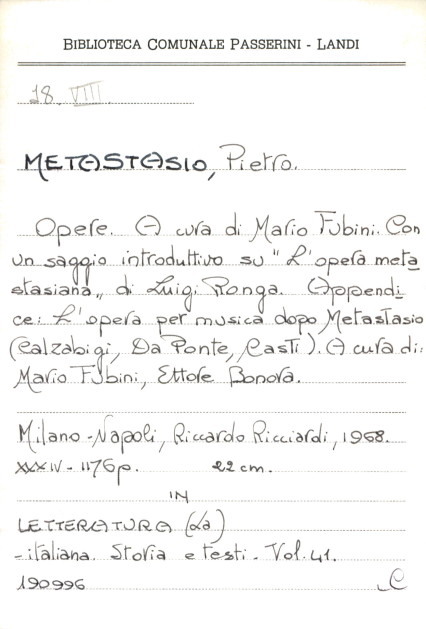 BIBLIOTECA COMUNALE PASSERINI - LANDI
18. VIII
METASTASIO, Pietro.
Opere. A cura di Mario Fubini. Con
un saggio introduttivo su "L'opera meta
stasiana" di Luigi Ronga. Appendi
ce: L'opera per musica dopo Metastasio
(Calzabigi, Da Ponte, Casti). A cura di:
Mario Fubini, Ettore Bonora.
Milano-Napoli, Riccardo Ricciardi, 1968.
XXXIV - 1176 p. 22 cm.
IN
LETTERATURA (La)
-italiana. Storia e testi. Vol. 41.
190996 C